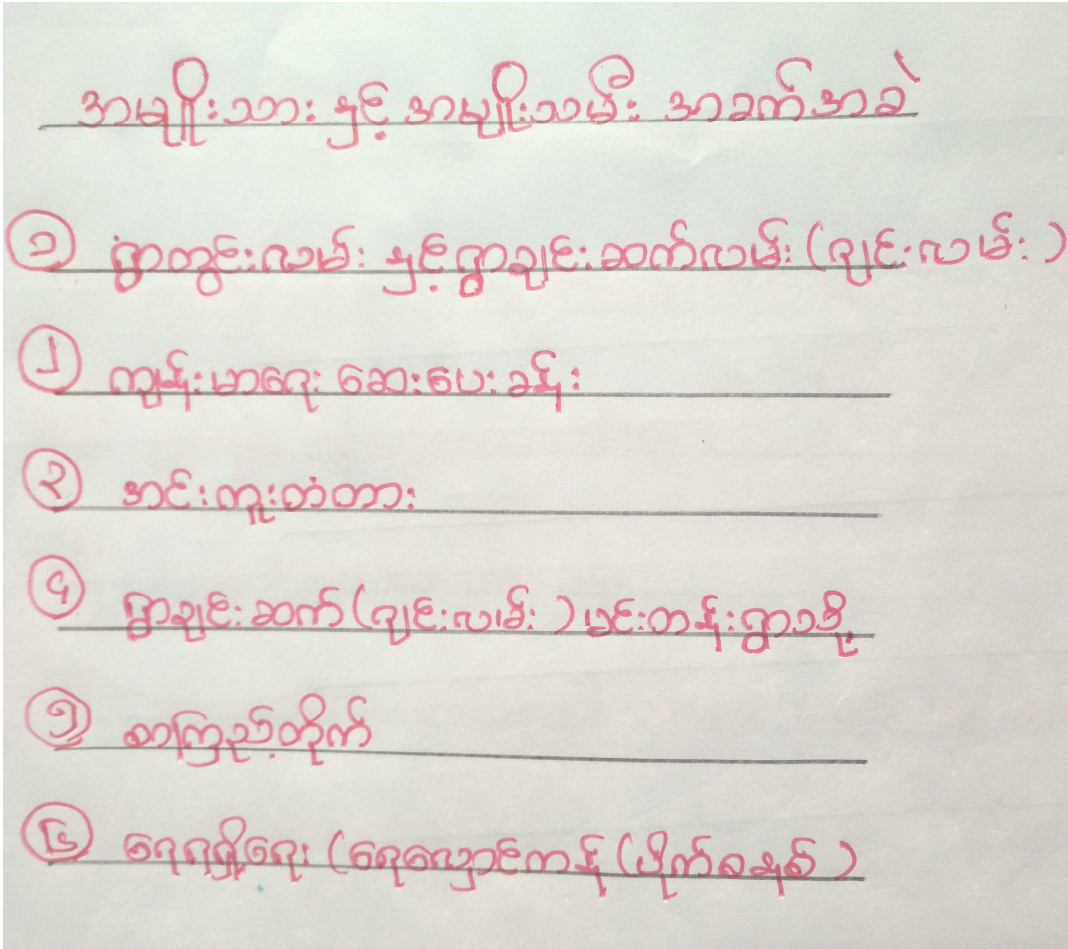 အမျိုးသား နှင့် အမျိုးသမီး အခက်အခဲ
၁ ရွာတွင်းလမ်း နှင့်ရွာချင်းဆက်လမ်း (ဂျင်းလမ်း)
၂ ကျန်းမာရေး ဆေးပေးခန်း
၃ အင်းကူးတံတား
၄ ရွာချင်းဆက် (ဂျင်းလမ်း) မင်းတန်းရွာသို့
၅ စာကြည့်တိုက်
၆ ရေရရှိရေး (ရေလှောင်ကန် (ပိုက်စနစ်)